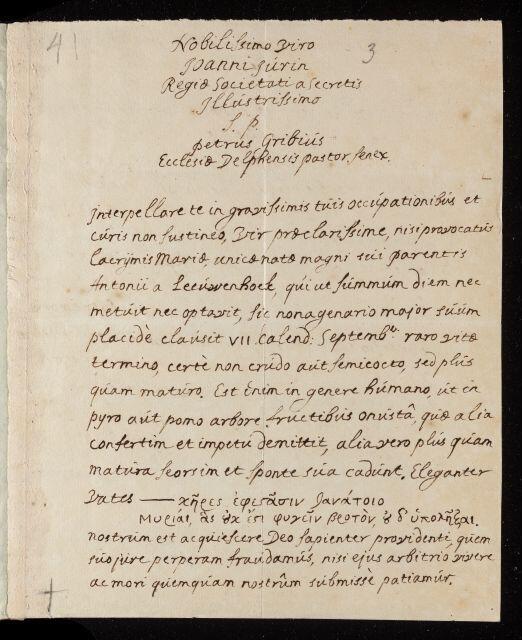 41
3
Nobilissimo Viro
Joanni Jurin
Regiæ Societati a Secretis
Illustrissimo
S. p.
Petrus Gribiùs
Ecclesiæ Delphensis pastor senex.
Interpellare te in gravissimis tùis occùpationibùs et
cùris non sustineo, Vir præclarissime, nisi provocatùs
lacrÿmis Mariæ unicæ natæ magni sùi parentis
Antonii a Leeùwenhoek, qùi ut sùmmùm diem nec
metùit nec optavit, sic nonagenario major sùùm
placidè claùsit VII calend: Septembr. raro vitæ
termino, certè non crùdo aùt semicocto, sed plùs
qùam matùro. Est enim in genere hùmano, ùt in
pyro aùt pomo arbore frùctibùs onùstâ, qùæ alia
confertim et impetù demittit, alia vero plùs qùam
matùra seorsim et sponte sùa cadùnt. Eleganter
Vates — κῆρες ἐφεςᾶσιν θανάτοιο
Μυρίαι, ἃς ὐκ ἔςι φυγεῖν βροτὸν, ὐδ' ὑπολῆξαι.
nostrùm est acqùiescere Deo sapienter providenti, qùem
sùo jùre perperam fraùdamùs, nisi ejùs arbitrio vivere
ac mori qùemqùam nostrûm sùbmissè patiamùr.